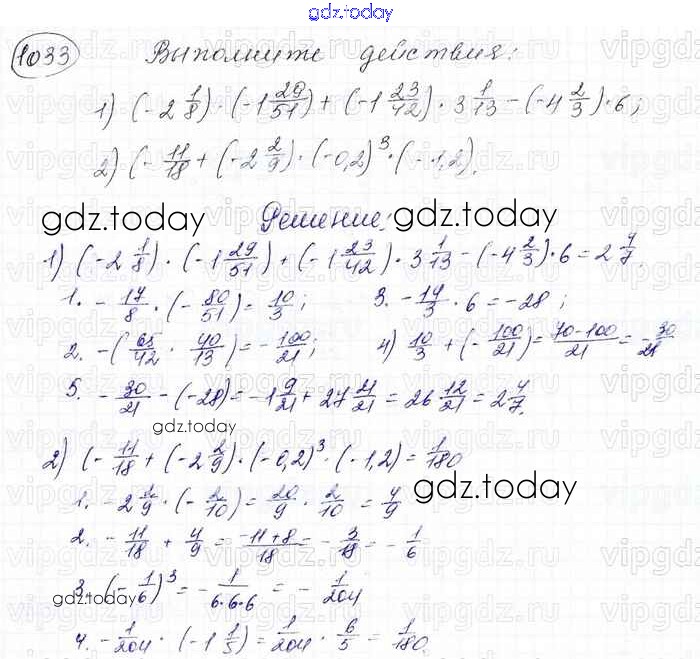 gdz.today
1033 Выполните действия:
1) (-2 1/8) · (-1 29/51) + (-1 23/42) · 3 1/13 - (-4 2/3) · 6;
2) (- 11/18 + (-2 2/9) · (-0,2)³ · (-1,2).
gdz.today Решение: gdz.today
1) (-2 1/8) · (-1 29/51) + (-1 23/42) · 3 1/13 - (-4 2/3) · 6 = 2 4/7.
1. - 17/8 · (- 80/51) = 10/3; 3. - 14/3 · 6 = -28;
2. -(65/42 · 40/13) = - 100/21; 4) 10/3 + (- 100/21) = 70-100/21 = - 30/21
5. - 30/21 - (-28) = -1 9/21 + 27 21/21 = 26 12/21 = 2 4/7.
gdz.today
2) (- 11/18 + (-2 2/9) · (-0,2)³ · (-1,2) = 1/180
1. -2 2/9 · (- 2/10) = 20/9 · 2/10 = 4/9 gdz.today
2. - 11/18 + 4/9 = -11+8/18 = - 3/18 = - 1/6
3. (- 1/6)³ = - 1/6·6·6 = - 1/204
gdz.today
4. - 1/204 · (-1 1/5) = 1/204 · 6/5 = 1/180.